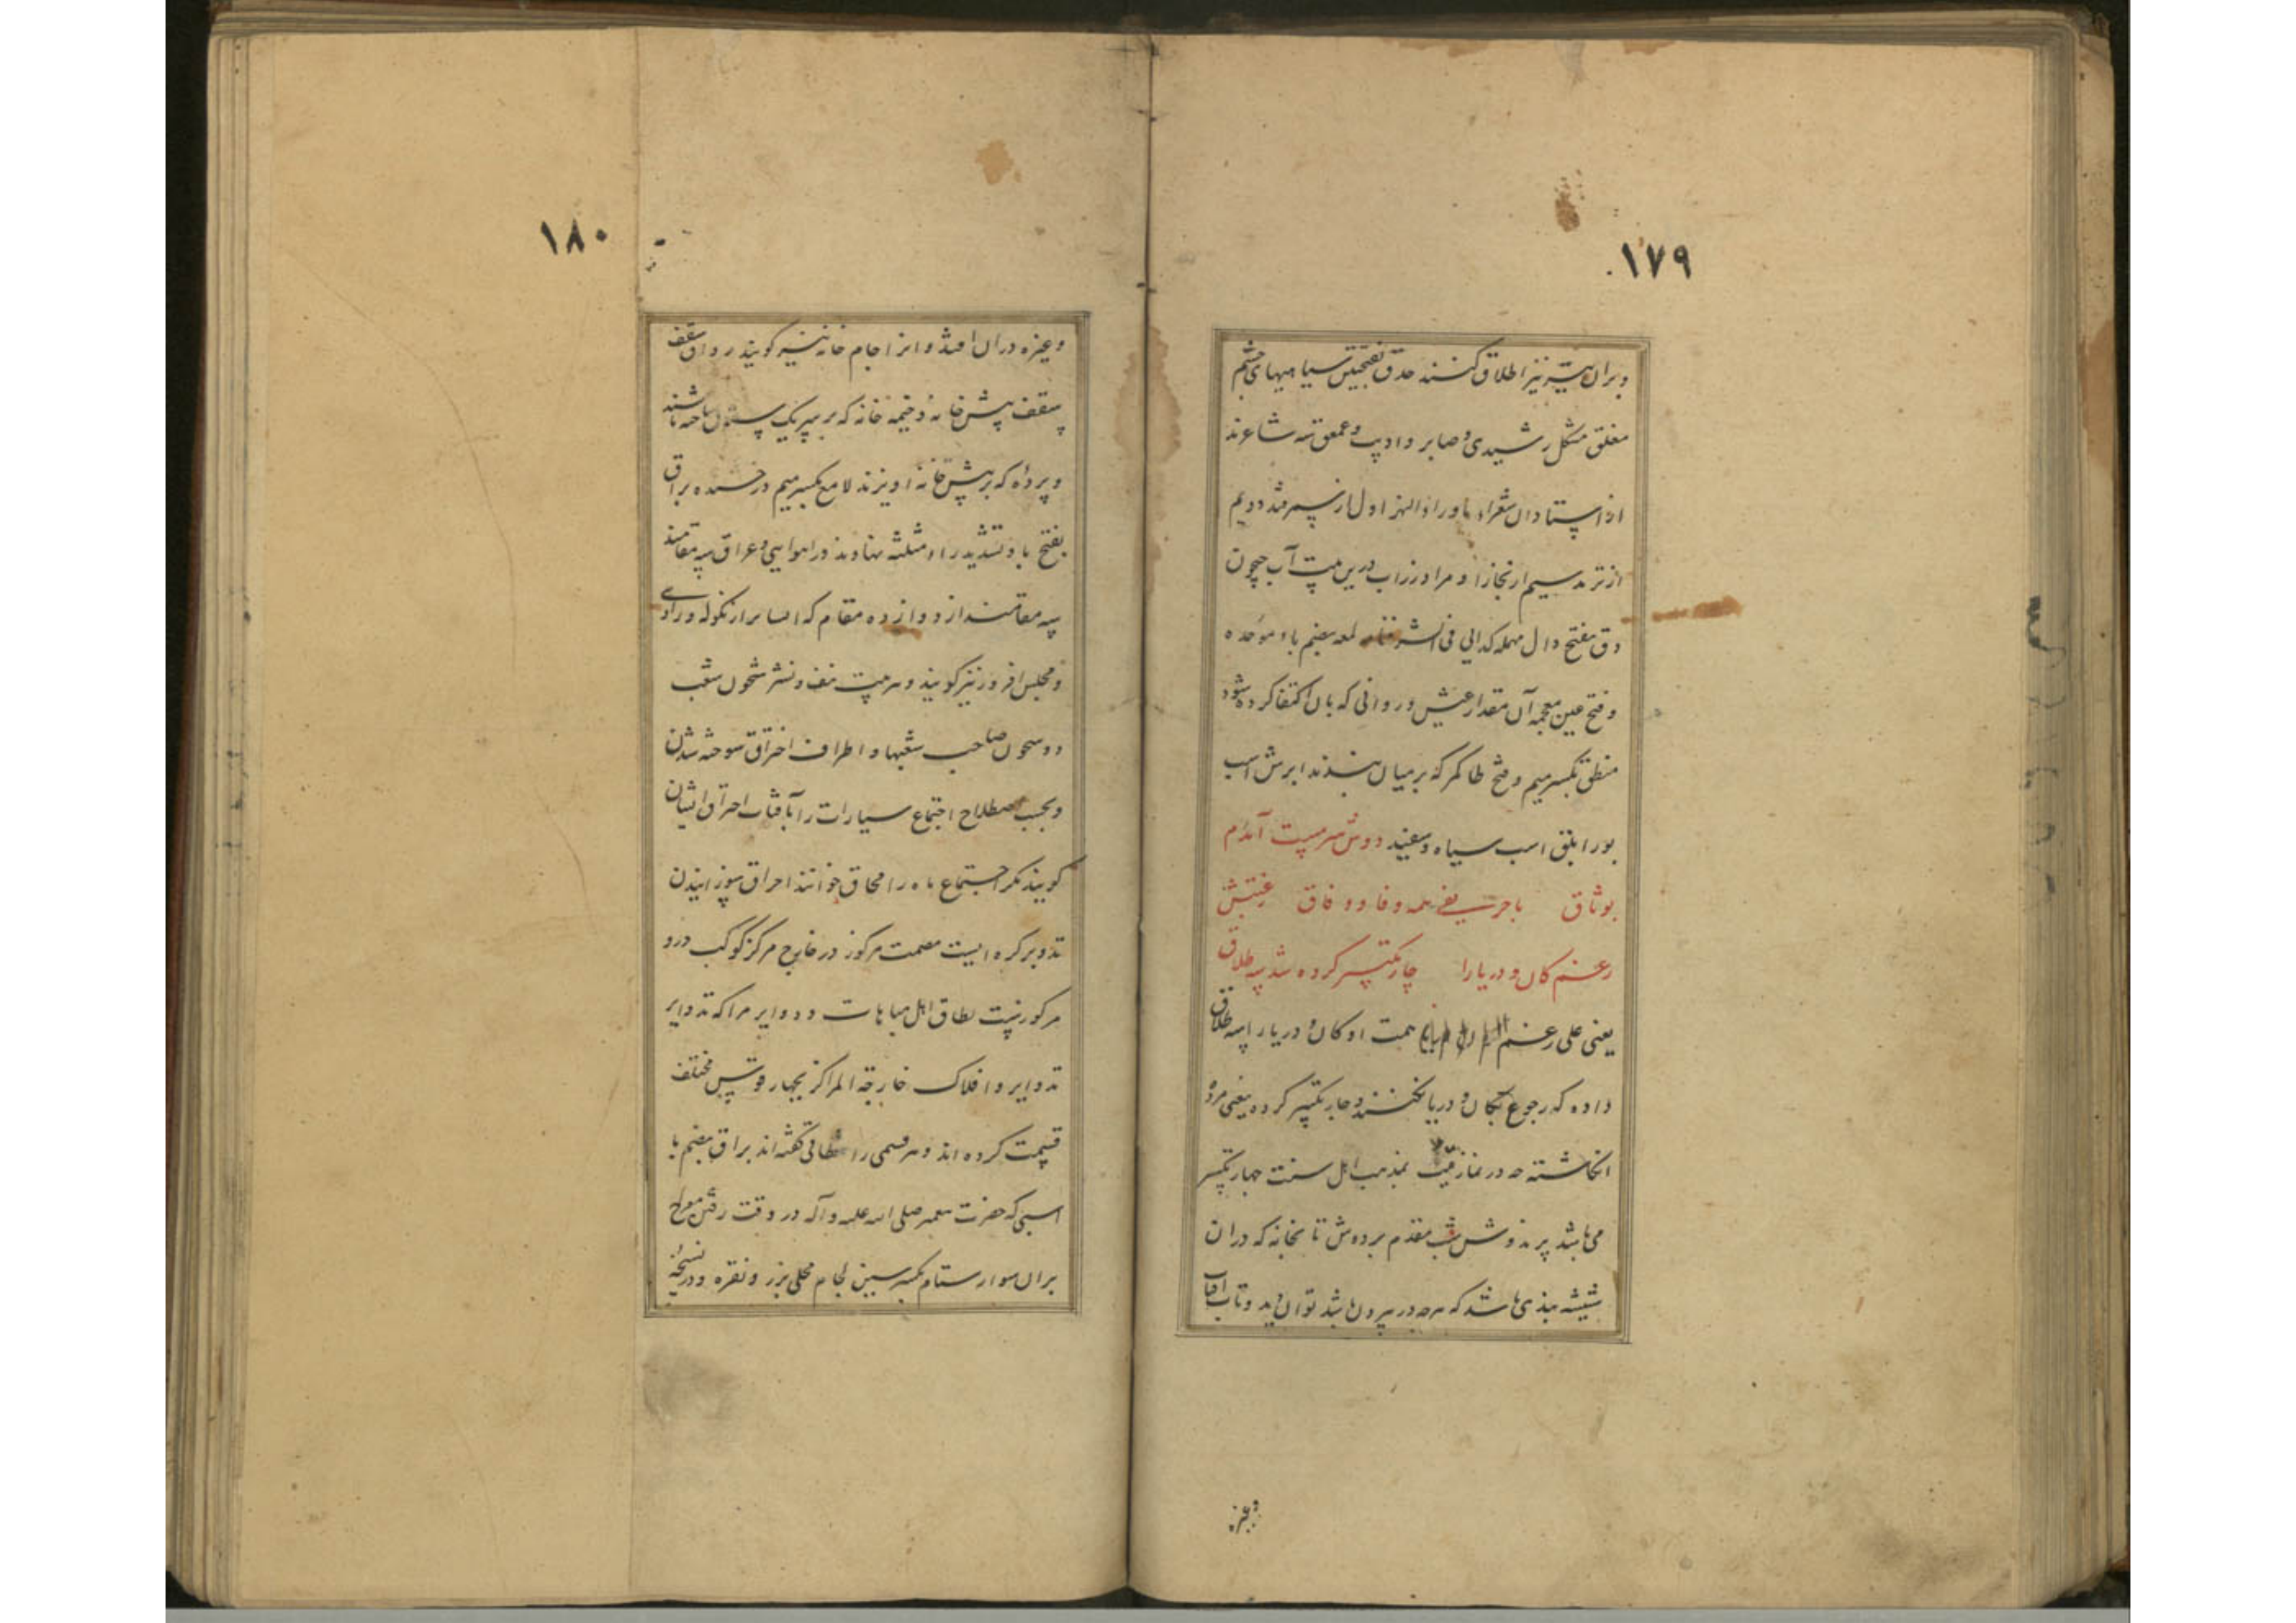 ١٧٩
و بران نیز اطلاق کنند حدق بفتحتین سیاهیهای چشم
مغلق مشکل رشیدی و صابر و ادیب و عمعق سه شاعرند
از استادان شعراء ماوراء النهر اول از سمرقند دویم
از ترمد سیم از بخارا و مراد زراب درین بیت آب جیحون
دق بفتح دال مهمله کدایی فی لمعه بضم باء موحده
و فتح عین معجمه آن مقدار عیش و روانی که بان اکتفا کرده شود
منطق بکسر میم و فتح طا کمر که بر میان بندند ابرش اسب
بور ابلق اسب سیاه و سفید دوش سرمست آمدم
بوثاق با حریفی همه وفا و وفاق
رغم کان و دریا را چار تکبیر کرده شد سه طلاق
یعنی علی رغم همت او کان و دریا را سه طلاق
داده که رجوع بکان و دریا نکنند و چار تکبیر کرده یعنی مرده
انکاشته چه در نماز میت بمذهب اهل سنت چهار تکبیر
می باشد پرندوش شب مقدم بر دوش تابخانه که دران
شیشه بندی باشد که هر چه در بیرون باشد توان دید و تاب آفتاب
وغیره
١٨٠
وغیره دران افتد و انرا جام خانه نیز کویند رواق سقف
سقف پیش خانه و خیمه خانه که بر سر یک ستون ساخته باشند
و پرده که بر پیش خانه اویزند لامع بکسر میم درخشنده براق
بفتح باء و تشدید راء مثلثه نهاوند و راهوی و عراق سه مقامند
سه مقامند از دوازده مقام که
و مجلس افروز نیز کویند و هر بیت لف و نشر شحون شعب
دو صاحب شعبها و اطراف احتراق سوخته شدن
و بحسب اصطلاح اجتماع سیارات را بآفتاب احتراق ایشان
کویند مکر اجتماع ماه را محاق خوانند احراق سوزانیدن
تدویر کره ایست مصمت مرکوز در خارج مرکز کوکب درو
مرکوز نیست نطاق اهل ودوایر مراکه تدوایر
تدوایر و افلاک خارجة المراکز بچهار قوس مختلف
قسمت کرده اند و هر قسمی را نطاقی کفته اند براق بضم با
اسبی که حضرت پیغمبر صلی الله علیه و آله در وقت رفتن معراج
بران سوار ستام بکسر سین لجام محلی بزر و نقره و در نسخه